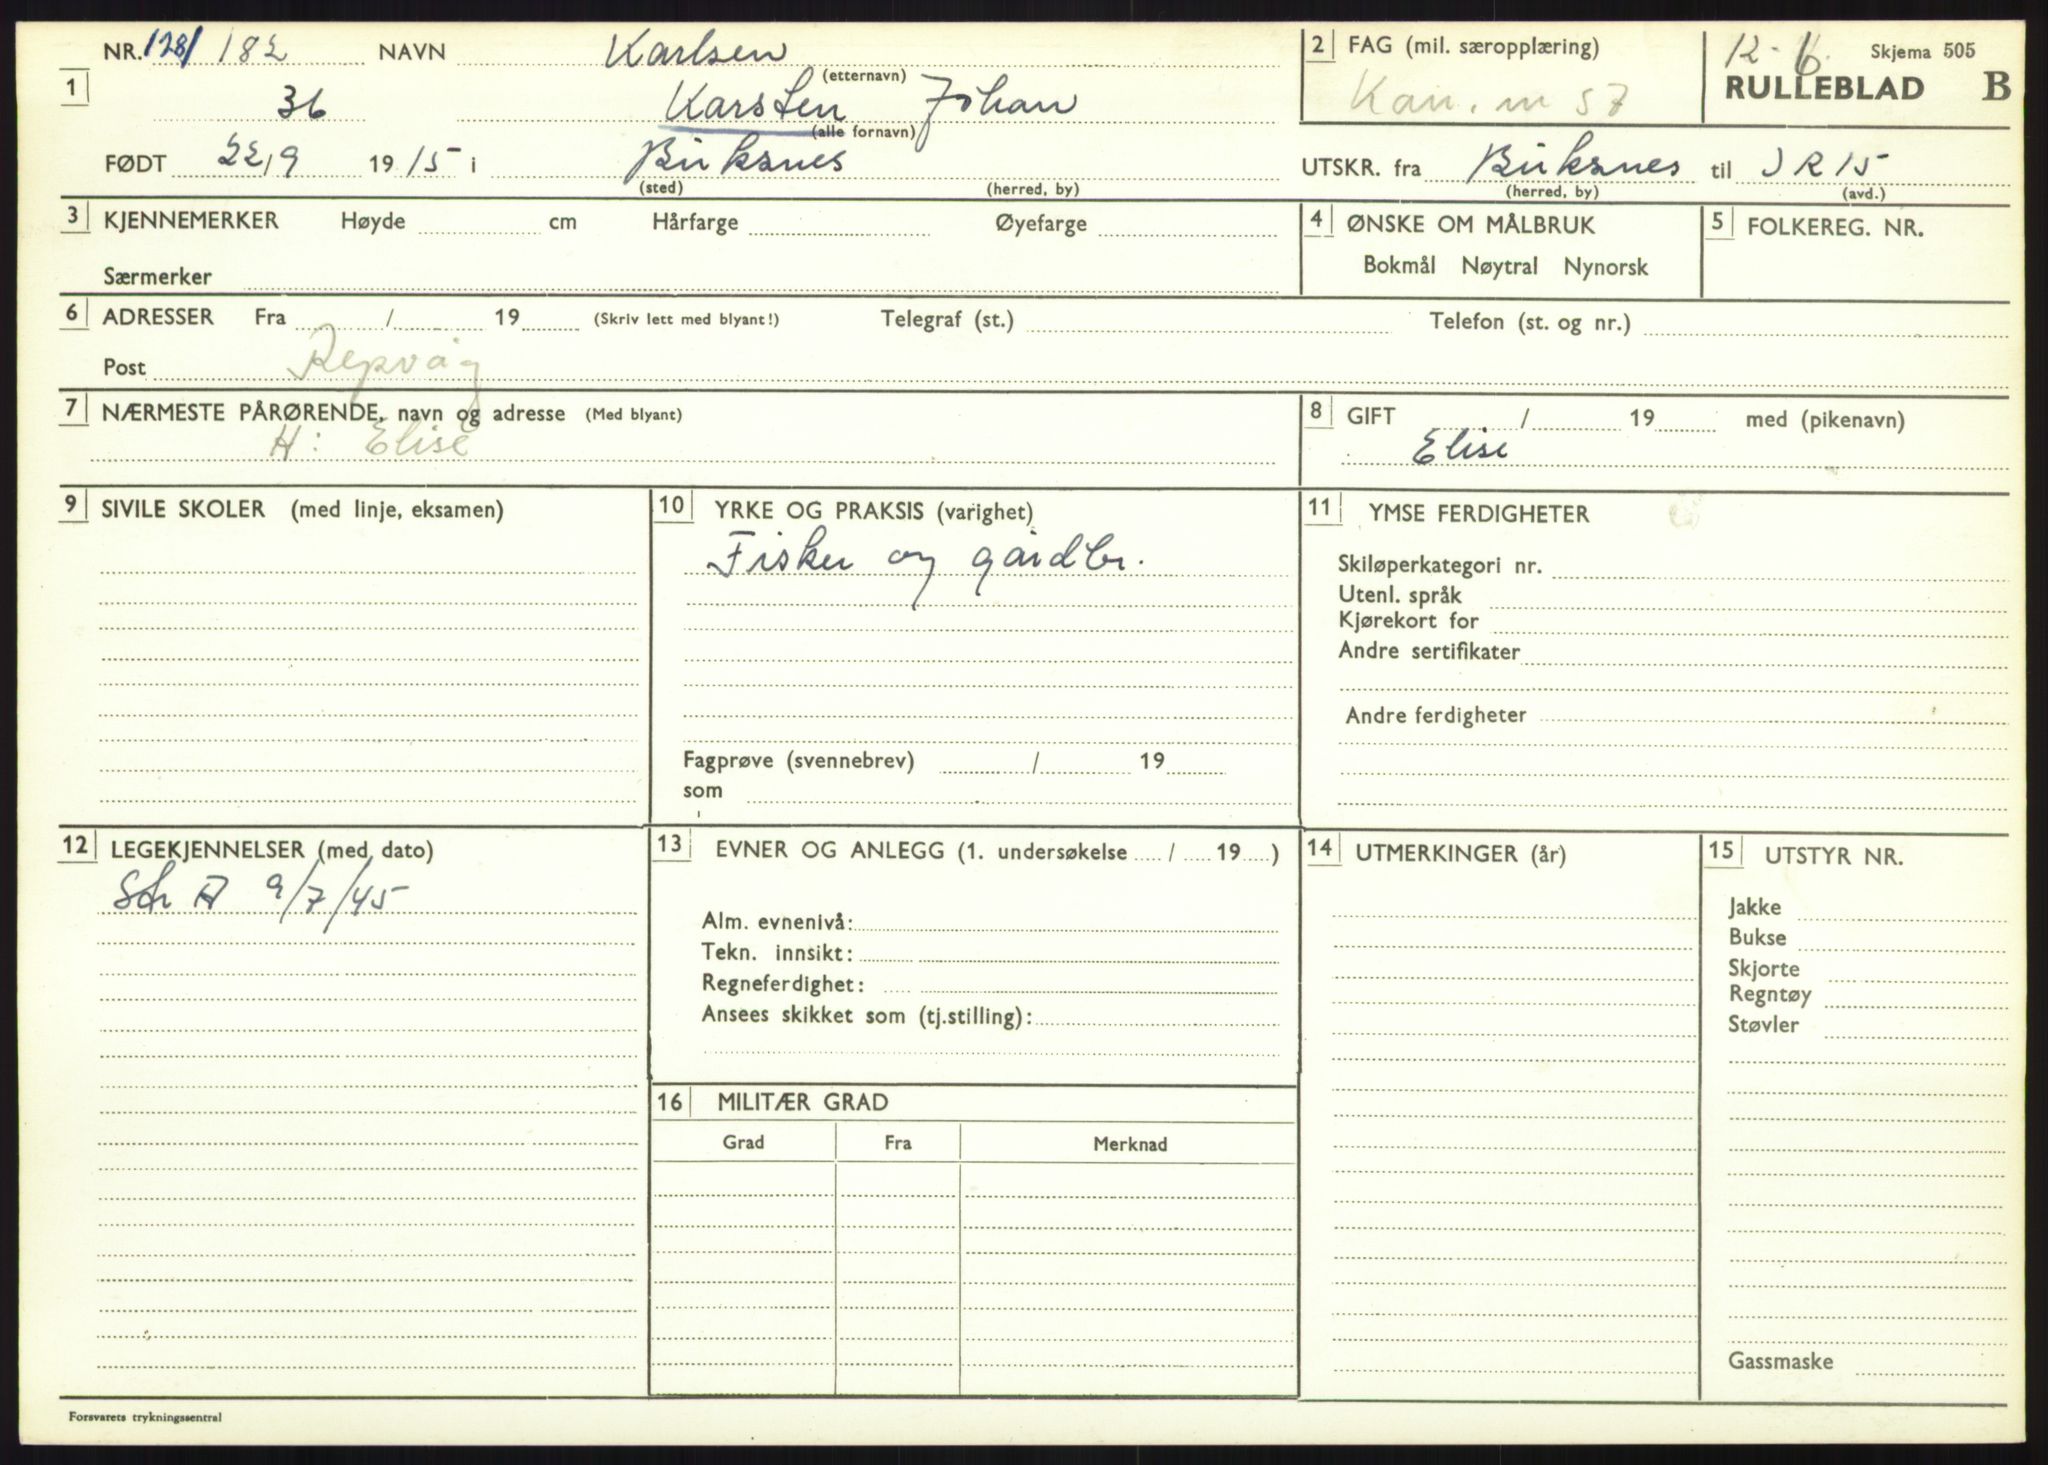 NR. 128/ 182 NAVN Karlsen
(etternavn)
2 FAG (mil. særopplæring)
Kan. m 57
12-6. Skjema 505
RULLEBLAD B
1
36 Karsten Johan
(alle fornavn)
FØDT 22/9 1915 i Birksnes
(sted) (herred, by)
UTSKR. fra Birksnes til IR15
(herred, by) (avd.)
3 KJENNEMERKER Høyde cm Hårfarge Øyefarge
Særmerker
4 ØNSKE OM MÅLBRUK
Bokmål Nøytral Nynorsk
5 FOLKEREG. NR.
6 ADRESSER Fra / 19 (Skriv lett med blyant!) Telegraf (st.) Telefon (st. og nr.)
Post Repvåg
7 NÆRMESTE PÅRØRENDE, navn og adresse (Med blyant)
H: Elise
8 GIFT / 19 med (pikenavn)
Elise
9 SIVILE SKOLER (med linje, eksamen)
10 YRKE OG PRAKSIS (varighet)
Fisker og gårdbr.
Fagprøve (svennebrev) / 19
som
11 YMSE FERDIGHETER
Skiløperkategori nr.
Utenl. språk
Kjørekort for
Andre sertifikater
Andre ferdigheter
12 LEGEKJENNELSER (med dato)
Str A 9/7/45
13 EVNER OG ANLEGG (1. undersøkelse / 19 )
Alm. evnenivå:
Tekn. innsikt:
Regneferdighet:
Ansees skikket som (tj.stilling):
14 UTMERKINGER (år)
15 UTSTYR NR.
Jakke
Bukse
Skjorte
Regntøy
Støvler
Gassmaske
16 MILITÆR GRAD
Grad Fra Merknad
Forsvarets trykningssentral